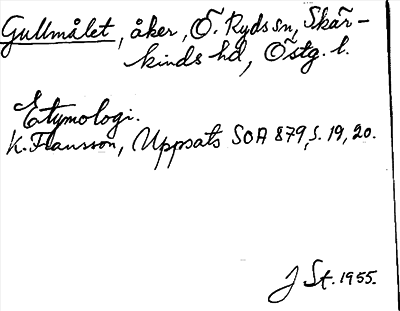 Gullmålet, åker, Ö. Ryds sn, Skär-
kinds hd, Östg. l.
Etymologi.
K. Hansson, Uppsats SOA 879, s. 19, 20.
J St. 1955.